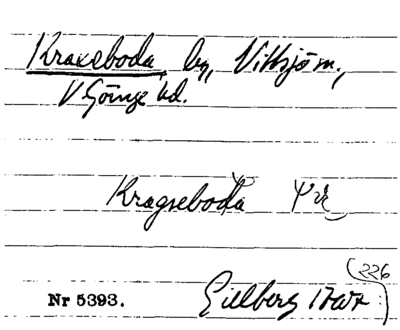 Kraxeboda, by, Vittsjö sn,
V Göinge hd.
Kragseboda
226
Nr 5393. Gillberg